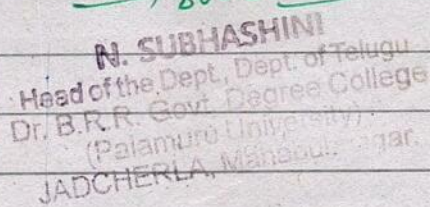 N. SUBHASHINI
Head of the Dept., Dept. of Telugu
Dr. B.R.R. Govt. Degree College
(Palamuru University)
JADCHERLA,